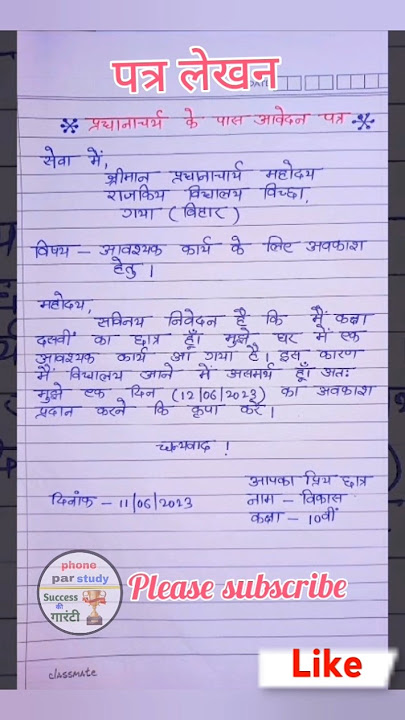 पत्र लेखन
प्रधानाचार्य के पास आवेदन पत्र
सेवा में,
श्रीमान प्रधानाचार्य महोदय
राजकिय विद्यालय विच्छा,
गया (बिहार)
विषय – आवश्यक कार्य के लिए अवकाश
हेतु।
महोदय,
सविनय निवेदन है कि मैं कक्षा
दसवीं का छात्र हूँ। मुझे घर में एक
आवश्यक कार्य आ गया है। इस कारण
मैं विद्यालय जाने में असमर्थ हूँ। अतः
मुझे एक दिन (12/06/2023) का अवकाश
प्रदान करने कि कृपा करें।
धन्यवाद !
आपका प्रिय छात्र
दिनांक – 11/06/2023
नाम – विकास
कक्षा – 10वीं
phone
par study
Success
की
गारंटी
Please subscribe
Like
classmate